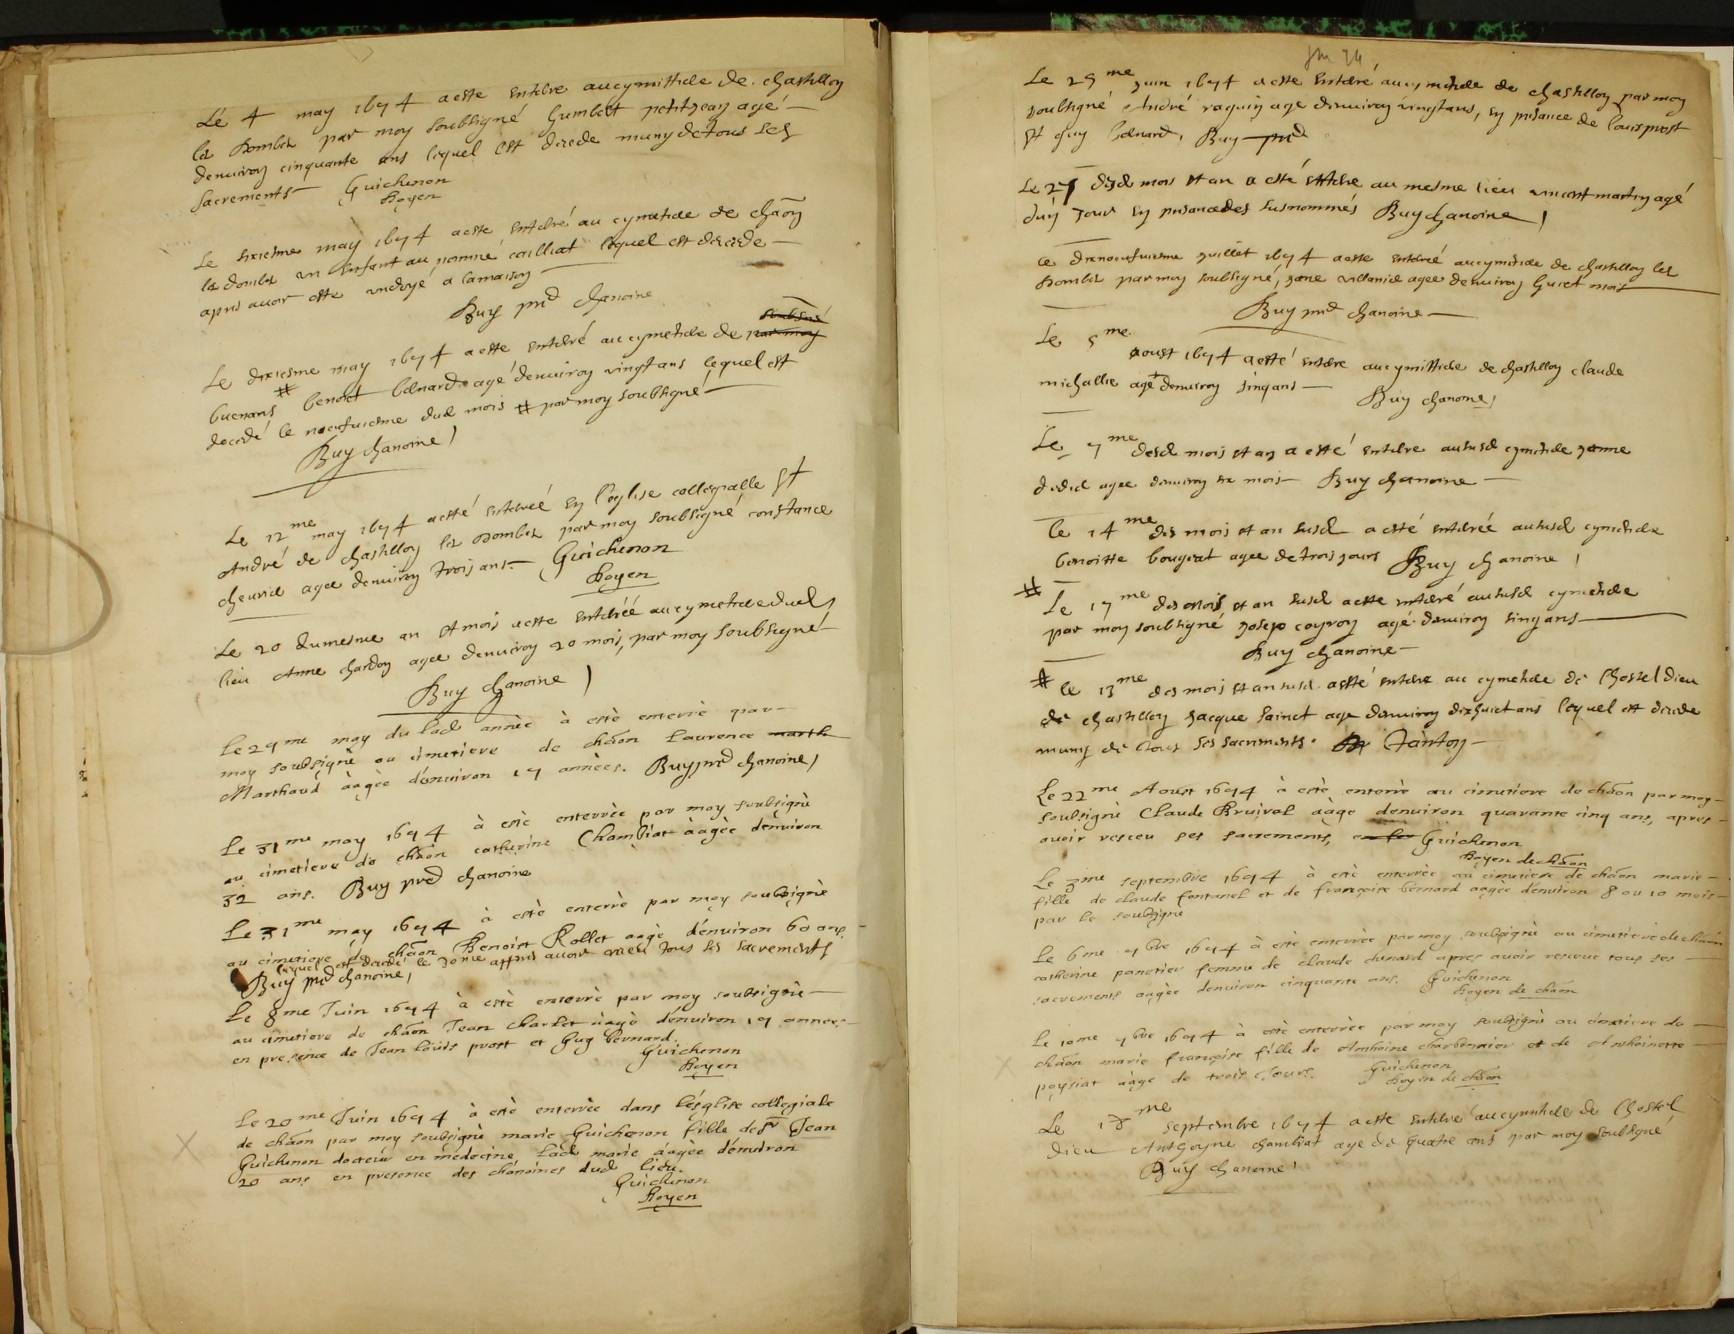 Le 4 may 1694 a este enterre au cymittiele de chastillon
les Dombes par moy soubsigné humbert petitjean agé
denviron cinquante ans lequel est decede muny de tous ses
sacrements Guichenon
Doyen
Le sixiesme may 1694 a este enterré au cymetiele de chãon
les dombes un enfant au nommé cailliat lequel est decede
apres avoir este undoyé a la maison
Buy pnd chanoine
Le dixiesme may 1694 a este enterré au cymetiele de par moy soubsné
buenans # benoict benard agé denviron vingt ans lequel est
decedé le neufuiesme dud mois # par moy soubsigné
Buy chanoine
Le 12me may 1694 a esté enterreé en l'église collegialle St
André de chastillon les dombes par moy soubsigné constance
chevrié agee denviron trois ans. Guichenon
Doyen
Le 20 du mesme an et mois a este enterréé au cymetiele dud
lieu Anne chardon agee denviron 20 mois, par moy soubsigné
Buy chanoine
Le 29me may du lad annèe à estè enterrè par
moy soubsignè au cimetiere de chãon Laurence marth
Marthaud àagèe d'environ 19 années. Buy pnd chanoine
Le 31me may 1694 à estè enterrèe par moy soubsignè
au cimetiere de chãon catherine Chambiat àagèe denviron
32 ans. Buy pred chanoine
Le 31me may 1694 à estè enterrè par moy soubsignè
au cimetiere de chãon Benoist Rollet aagè d'environ 60 ans
lequel est decedé le 30me appres avoir receu tous les sacrements
Buy pnd chanoine
Le 8me Juin 1694 à estè enterrè par moy soubsignè
au cimetiere de chãon Jean Charlet àagè d'environ 19 annees
en presence de Jean louis prost et Guy bernard.
Guichenon
Doyen
Le 20me Juin 1694 à estè enterrèe dans l'èsglise collegiale
de chãon par moy soubsignè marie Guichenon fille de Sr Jean
Guichenon docteur en mèdecine, Lad marie àagèe d'environ
20 ans en presence des chanoines dud lieu.
Guichenon
Doyen
Le 25me juin 1694 a este enterré au cymetiele de chastillon par moy
soubsigné André raquin age denviron vingt ans, en presance de louis prost
et guy benard, Buy pnd
Le 27 desd mois et an a esté enterre au mesme lieu vincent martin agé
d'un jour en presance des susnommés Buy chanoine
Le dixneufuiesme juillet 1694 a este enterré au cymetiele de chastillon les
Dombes par moy soubsigné, jane villanié agee denviron huict mois
Buy pnd chanoine
Le 5me
aoust 1694 a esté enterre au cymittiele de chastillon claude
michallie agé denviron sinq ans Buy chanoine
Le 7me desd mois et an a esté enterre au susd cymetiele jeanne
didiel agee denviron six mois Buy chanoine
le 14me des mois et an susd a esté enterrée au susd cymetiele
benoitte bougeat agee de trois jours Buy chanoine
# Le 17me des mois et an susd a este enterré au susd cymetiele
par moy soubsigné josep coyron agé denviron sinq ans
Buy chanoine
# le 13me des mois et an susd a esté enterre au cymetiele de l'hostel dieu
de chastillon jacque sainct age denviron dixhuict ans lequel est decede
muny de tous ses sacrements. Tanton
Le 22me Aoust 1694 à estè enterrè au cimetiere de chãon par moy
soubsignè Claude Bruiral àagè denviron quarante cinq ans, apres
avoir receu ses sacrements, Guichenon
Doyen de chãon
Le 3me septembre 1694 à estè enterrèe au cimetiere de chãon marie
fille de claude fontanel et de françoise bernard aagèe d'environ 8 ou 10 mois
par le soubsignè
Le 6me 7bre 1694 à estè enterrèe par moy soubsignè au cimetiere de chãon
catherine panetier femme de claude dunard apres avoir receue tous ses
sacrements aagèe denviron cinquante ans. Guichenon
Doyen de chãon
Le 10me 7bre 1694 à estè enterrèe par moy soubsignè au cimetiere de
chãon marie françoise fille de Anthoine charbonnier et de Anthoinette
peysiat àage de trois Jours. Guichenon
Doyen de chãon
Le 18me septembre 1694 a este enterre au cymetiele de l'hostel
dieu Anthoyne chambiat age de quatre ans par moy soubsigné
Buy chanoine